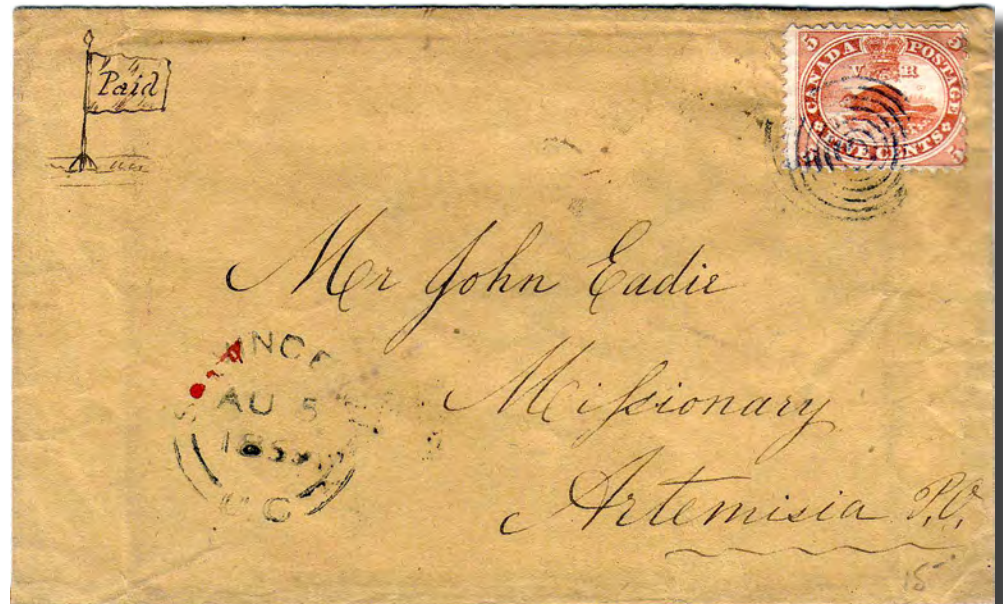 Paid
5 CANADA POSTAGE 5
V R
FIVE CENTS
5
Mr John Eadie
Missionary
Artemisia P.O.
AU 5
1859
U.C
15